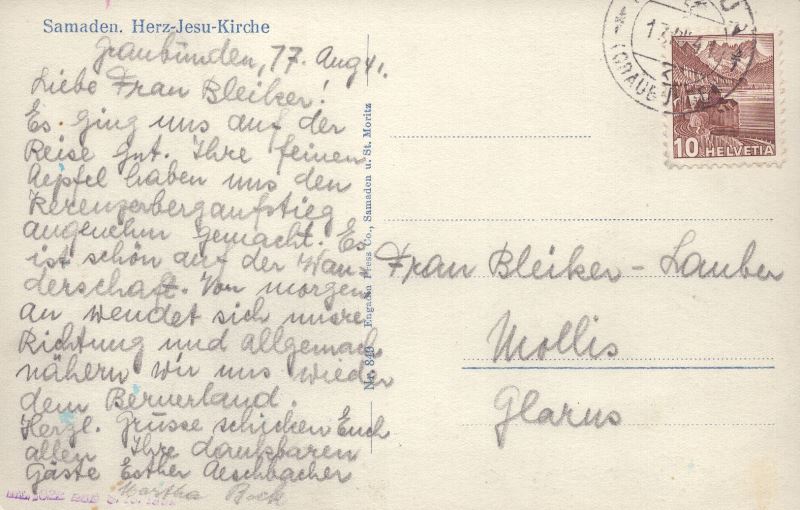 Samaden. Herz-Jesu-Kirche
Graubünden, 17. Aug 41.
Liebe Frau Bleiker!
Es ging uns auf der
Reise gut. Ihre feinen
Aepfel haben uns den
Kerenzerbergaufstieg
angenehm gemacht. Es
ist schön auf der Wan-
derschaft. Von morgen
an wendet sich unsre
Richtung und allgemach
nähern wir uns wieder
dem Bernerland.
Herzl. Grüsse schicken Euch
allen Ihre dankbaren
Gäste Esther Aeschbacher
Martha Bock
Nr. 849 Engadin Press Co., Samaden u. St. Moritz
10 HELVETIA
Frau Bleiker-Lauber
Mollis
Glarus